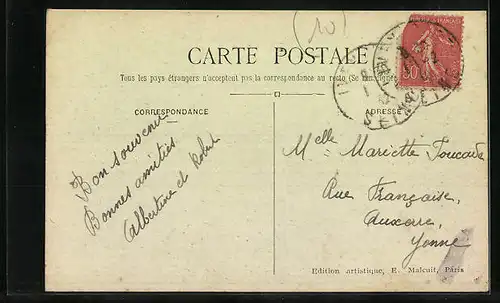 (10)
CARTE POSTALE
Tous les pays étrangers n'acceptent pas la correspondance au recto (Se renseigner
CORRESPONDANCE
ADRESSE
Bon souvenir
Bonnes amitiés
Albertine et Robert
Melle Mariette
Rue Française,
Auxerre,
Yonne
Edition artistique, E. Malcuit, Paris